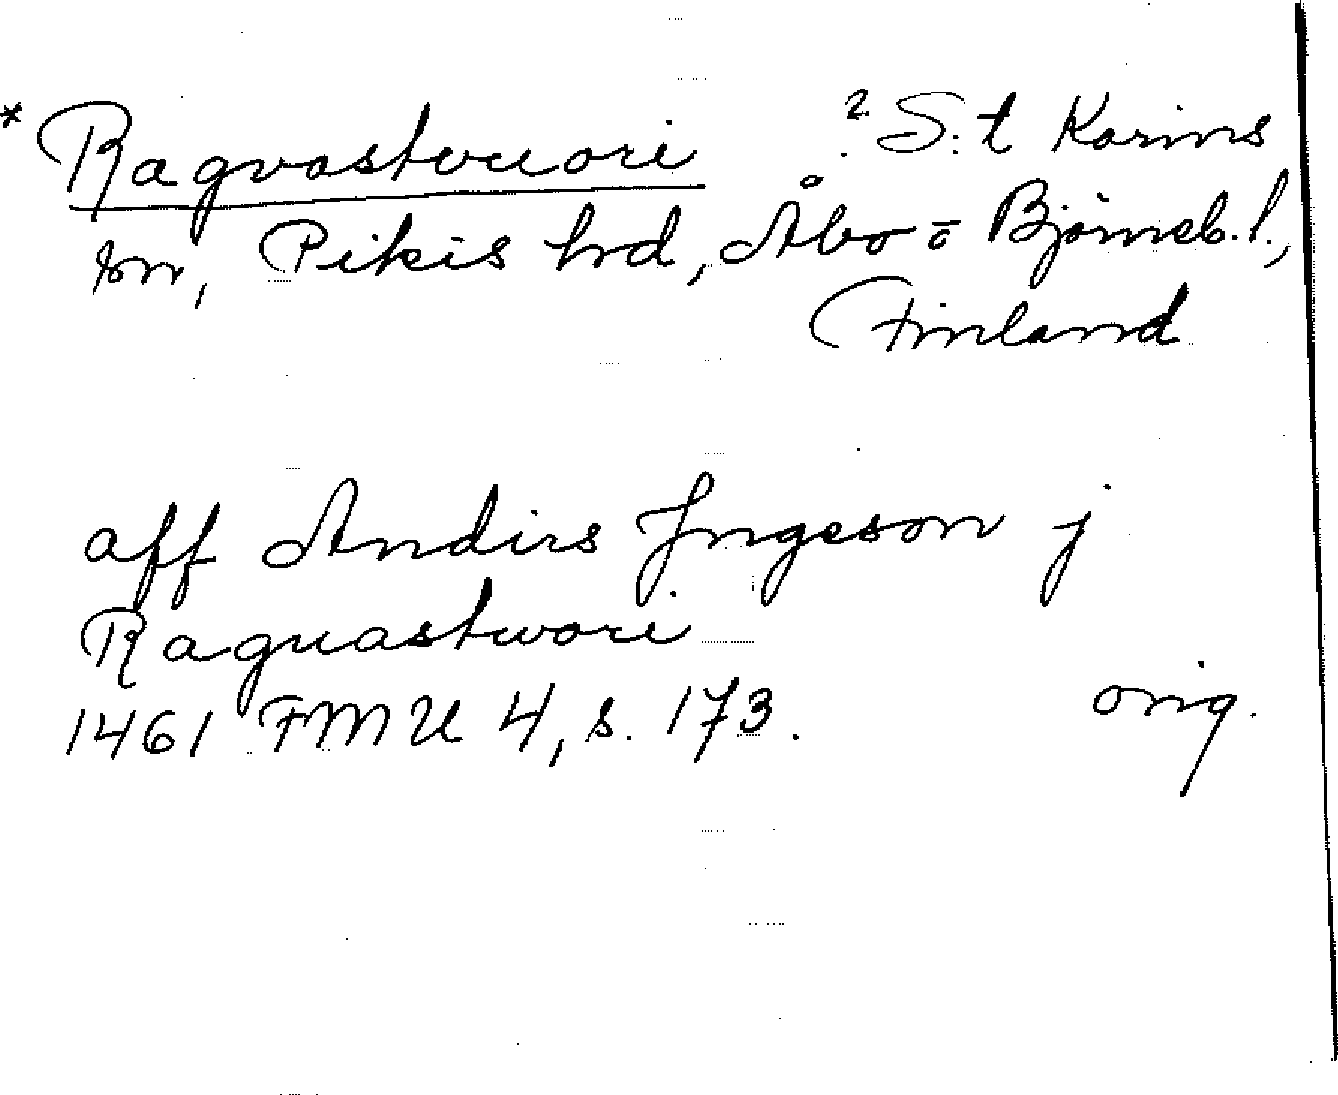 * Ragvastvuori ? S:t Karins
sn, Pikis hrd, Åbo o Björneb. l.,
Finland
aff Andirs Jngeson j
Raguastwori
1461 FMU 4, s. 173. orig.